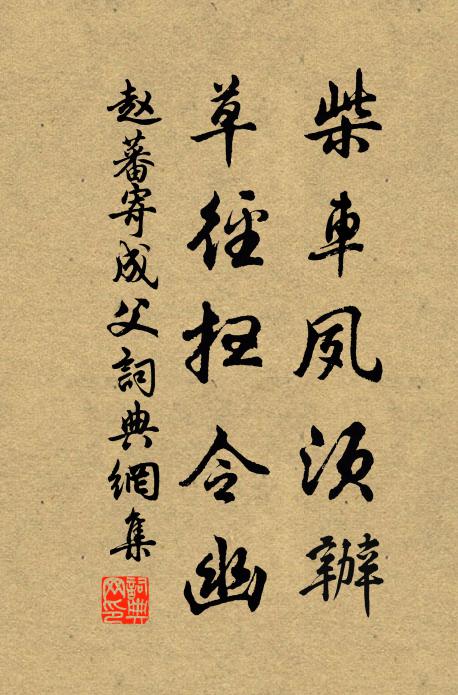 柴車夙須辦
草徑掃令幽
赵蕃寄成父詞典網集
詞典网印